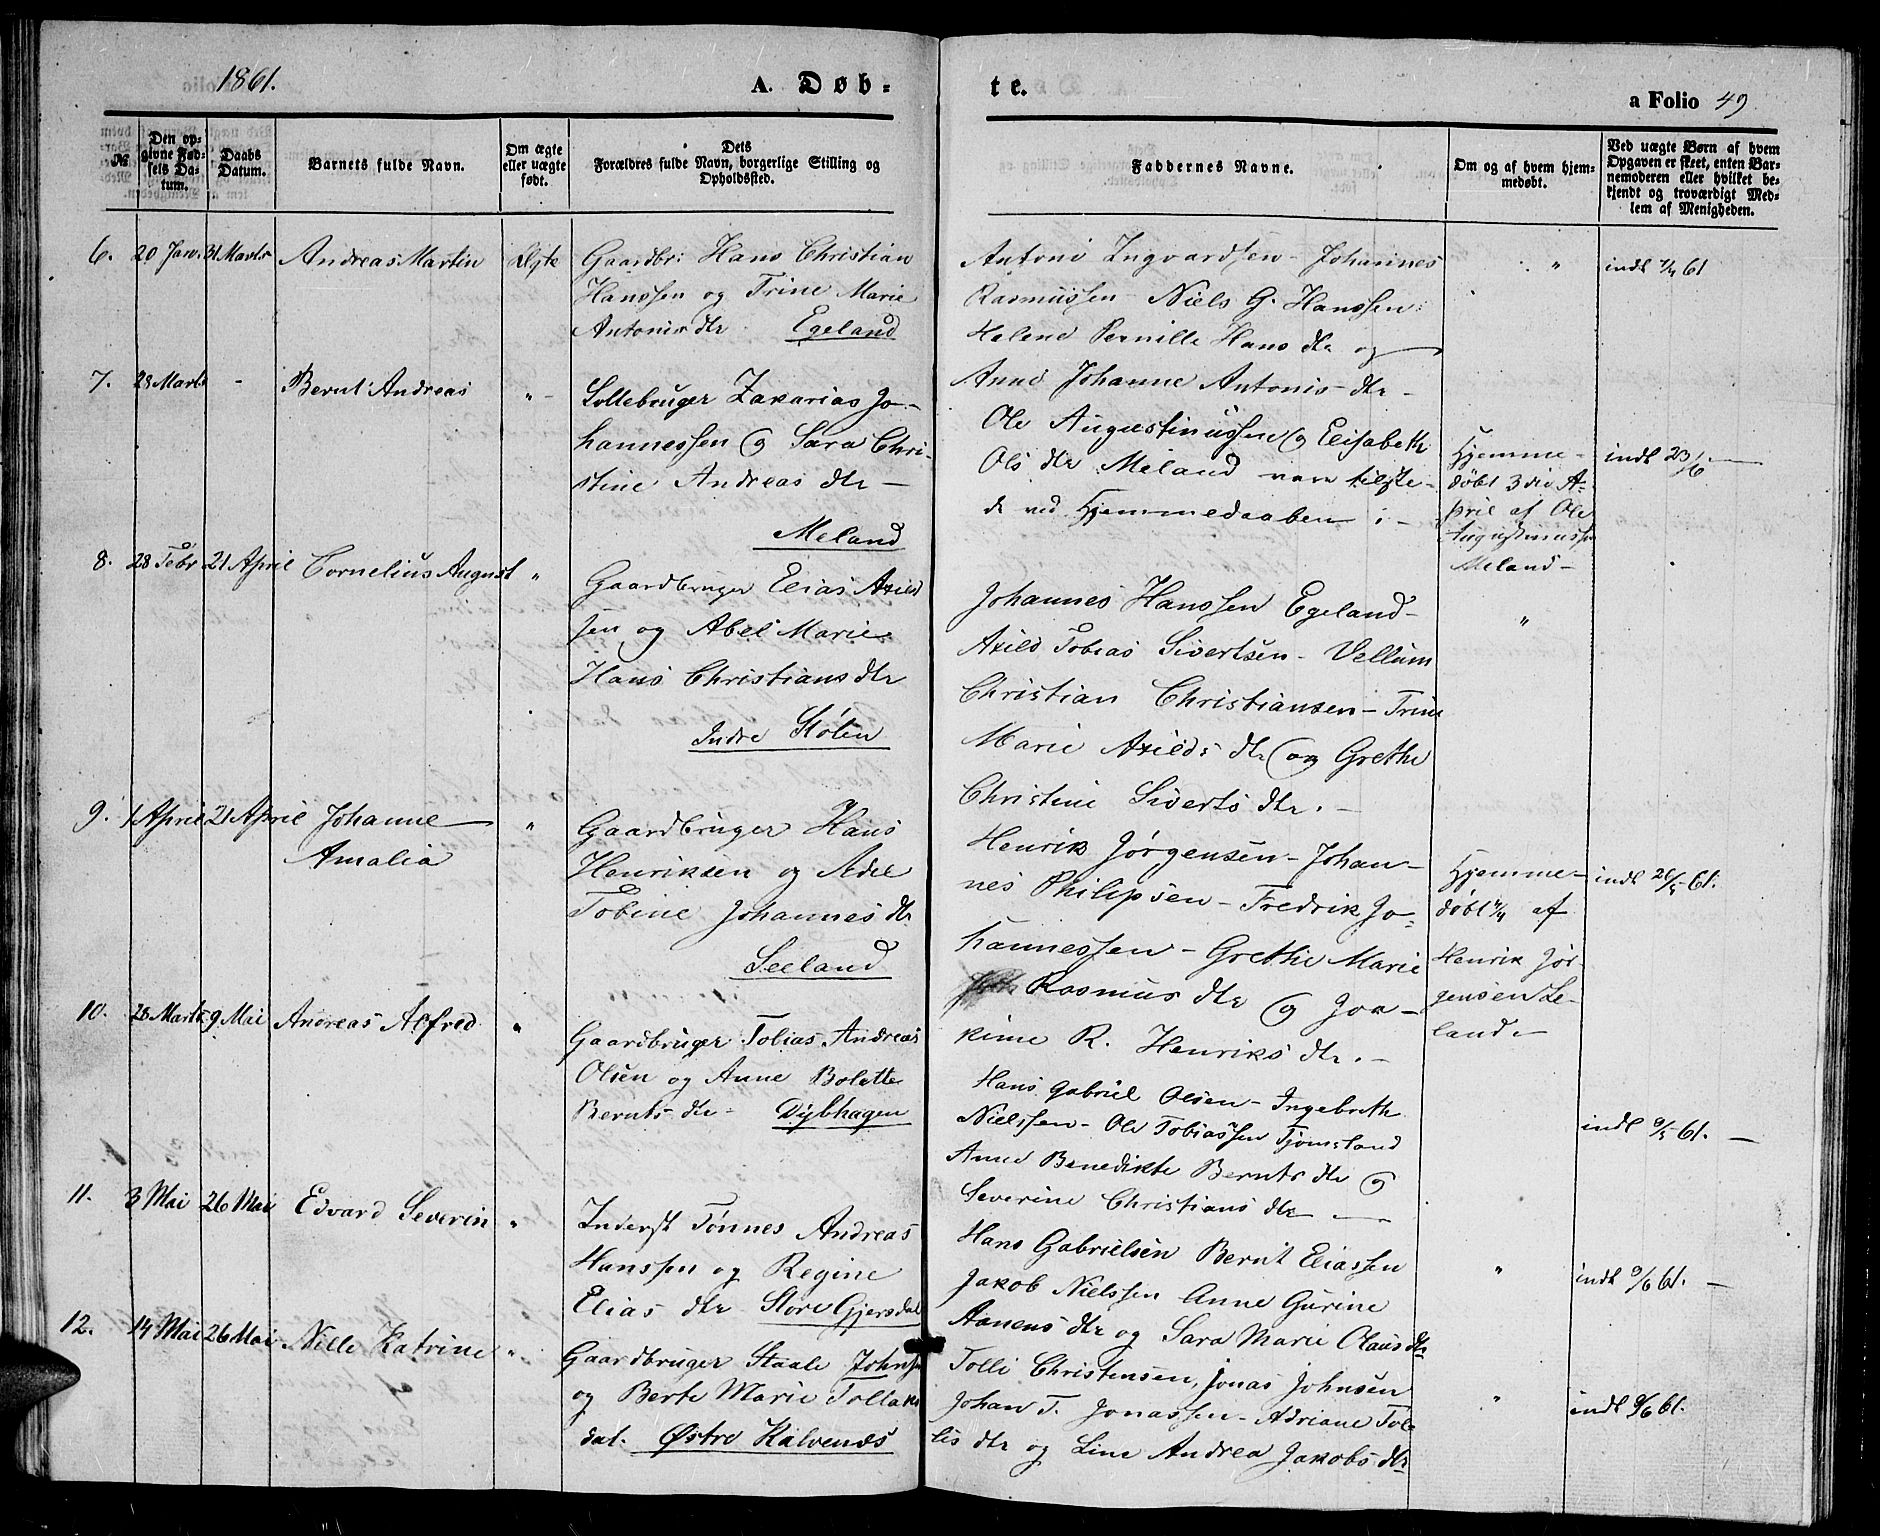 1861.
A. Døb-
te.
a Folio 49
№
Den op-
givne Fød-
sels Da-
tum.
Daabs
Datum.
Barnets fulde Navn.
Om ægte
eller uægte
født.
Dets
Forældres fulde Navn, borgerlige Stilling og
Opholdssted.
Faddernes Navne.
Om og af hvem hjem-
medøbt.
Ved uægte Børn af hvem
Opgaven er skeet, enten Bar-
nemoderen eller hvilket be-
kjendt og troværdigt Med-
lem af Menigheden.
6. 20 Jan. 31 Marts Andreas Martin Ægte
Gaardbr: Hans Christian
Hanssen og Trine Marie
Antonis dtr. Egeland
Antoni Ingvardsen - Johannes
Rasmussen - Niels G. Hanssen.
Helene Pernille Hans dtr og
Anne Johanne Antonis dtr -
" indt 7/4 61
7. 23 Marts - Bernt Andreas "
Sollebruger Zakarias Jo-
hannessen og Sara Chri-
stine Andreas dtr -
Meland
Ole Augustinussen og Elisabeth
Ols dtr Meland vare tilste-
de ved Hjemmedaaben -
Hjemme-
døbt 3die A-
pril af Ole
Augustinussen
Meland -
indt 23/6 -
8. 28 Febr 21 April Cornelius August "
Gaardbruger Elias Axild
sen og Abel Marie
Hans Christians dtr
Indre Stölen
Johannes Hanssen Egeland -
Axild Tobias Sivertsen - Vellum
Christian Christiansen - Trine
Marie Axilds dtr og Grethe
Christine Siverts dtr. -
"
9. 1 April 21 April Johanne
Amalia "
Gaardbruger Hans
Henriksen og Adel
Tobine Johannes dtr
Seeland
Henrik Jørgensen - Johan-
nes Philipsen - Fredrik Jo-
hannessen - Grethe Marie
Rasmus dtr og Joa-
kime R. Henriks dtr. -
Hjemme-
døbt 4/4 af
Henrik Jör-
gensen Le-
land -
indt 26/5 61.
10. 28 Marts 9 Mai Andreas Alfred "
Gaardbruger Tobias Andreas
Olsen og Anne Bolette
Bernts dtr - Dybhagen
Hans Gabriel Olsen - Ingebreth
Nielssen - Ole Tobiassen Tjomsland
Anne Benedikte Bernts dtr og
Severine Christians dtr -
indt 9/5 61. -
11. 3 Mai 26 Mai Edvard Severin "
Inderst Tønnes Andreas
Hanssen og Regine
Elias dtr Store Gjersdal
Hans Gabrielsen Bernt Eliassen
Jakob Nielssen Anne Gurine
Aanens dtr og Sara Marie Olaus dtr
" indt 9/6 61. -
12. 14 Mai 26 Mai Nille Katrine "
Gaardbruger Staale Johnsen
og Berte Marie Tollaks
dat. Østre Kalvenes
Tolli Christensen, Jonas Johnsen
Johan T. Jonassen - Adriane Tol-
lis dtr og Line Andrea Jakobs dtr
" indt 9/6 61.